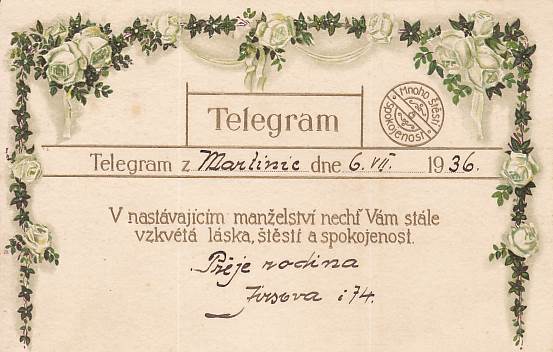 Telegram
Mnoho štěstí
spokojenosti
Telegram z Martinic dne 6. VII. 1936.
V nastávajícím manželství nechť Vám stále
vzkvétá láska, štěstí a spokojenost.
Přeje rodina
Jirsova